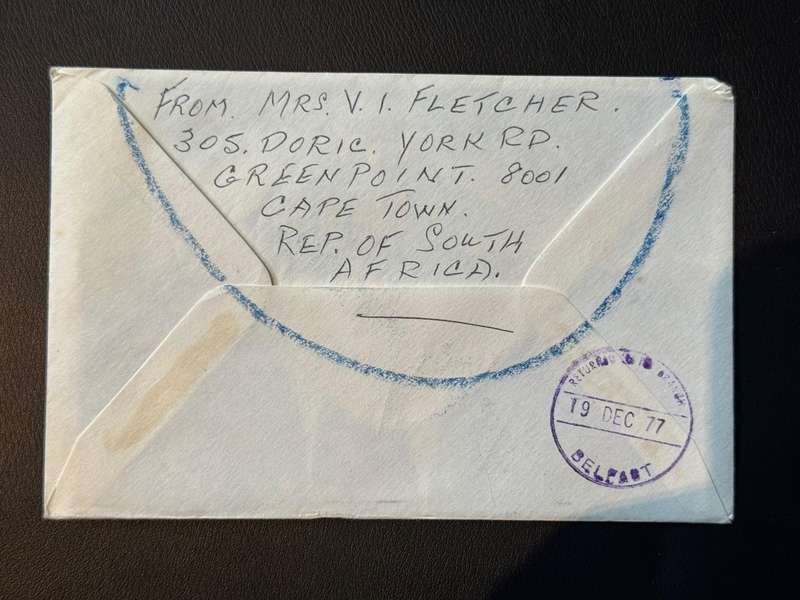 FROM. MRS. V. I. FLETCHER.
305. DORIC. YORK RD.
GREENPOINT. 8001
CAPE TOWN.
REP. OF SOUTH
AFRICA.
BRANCH
19 DEC 77
BELFAST